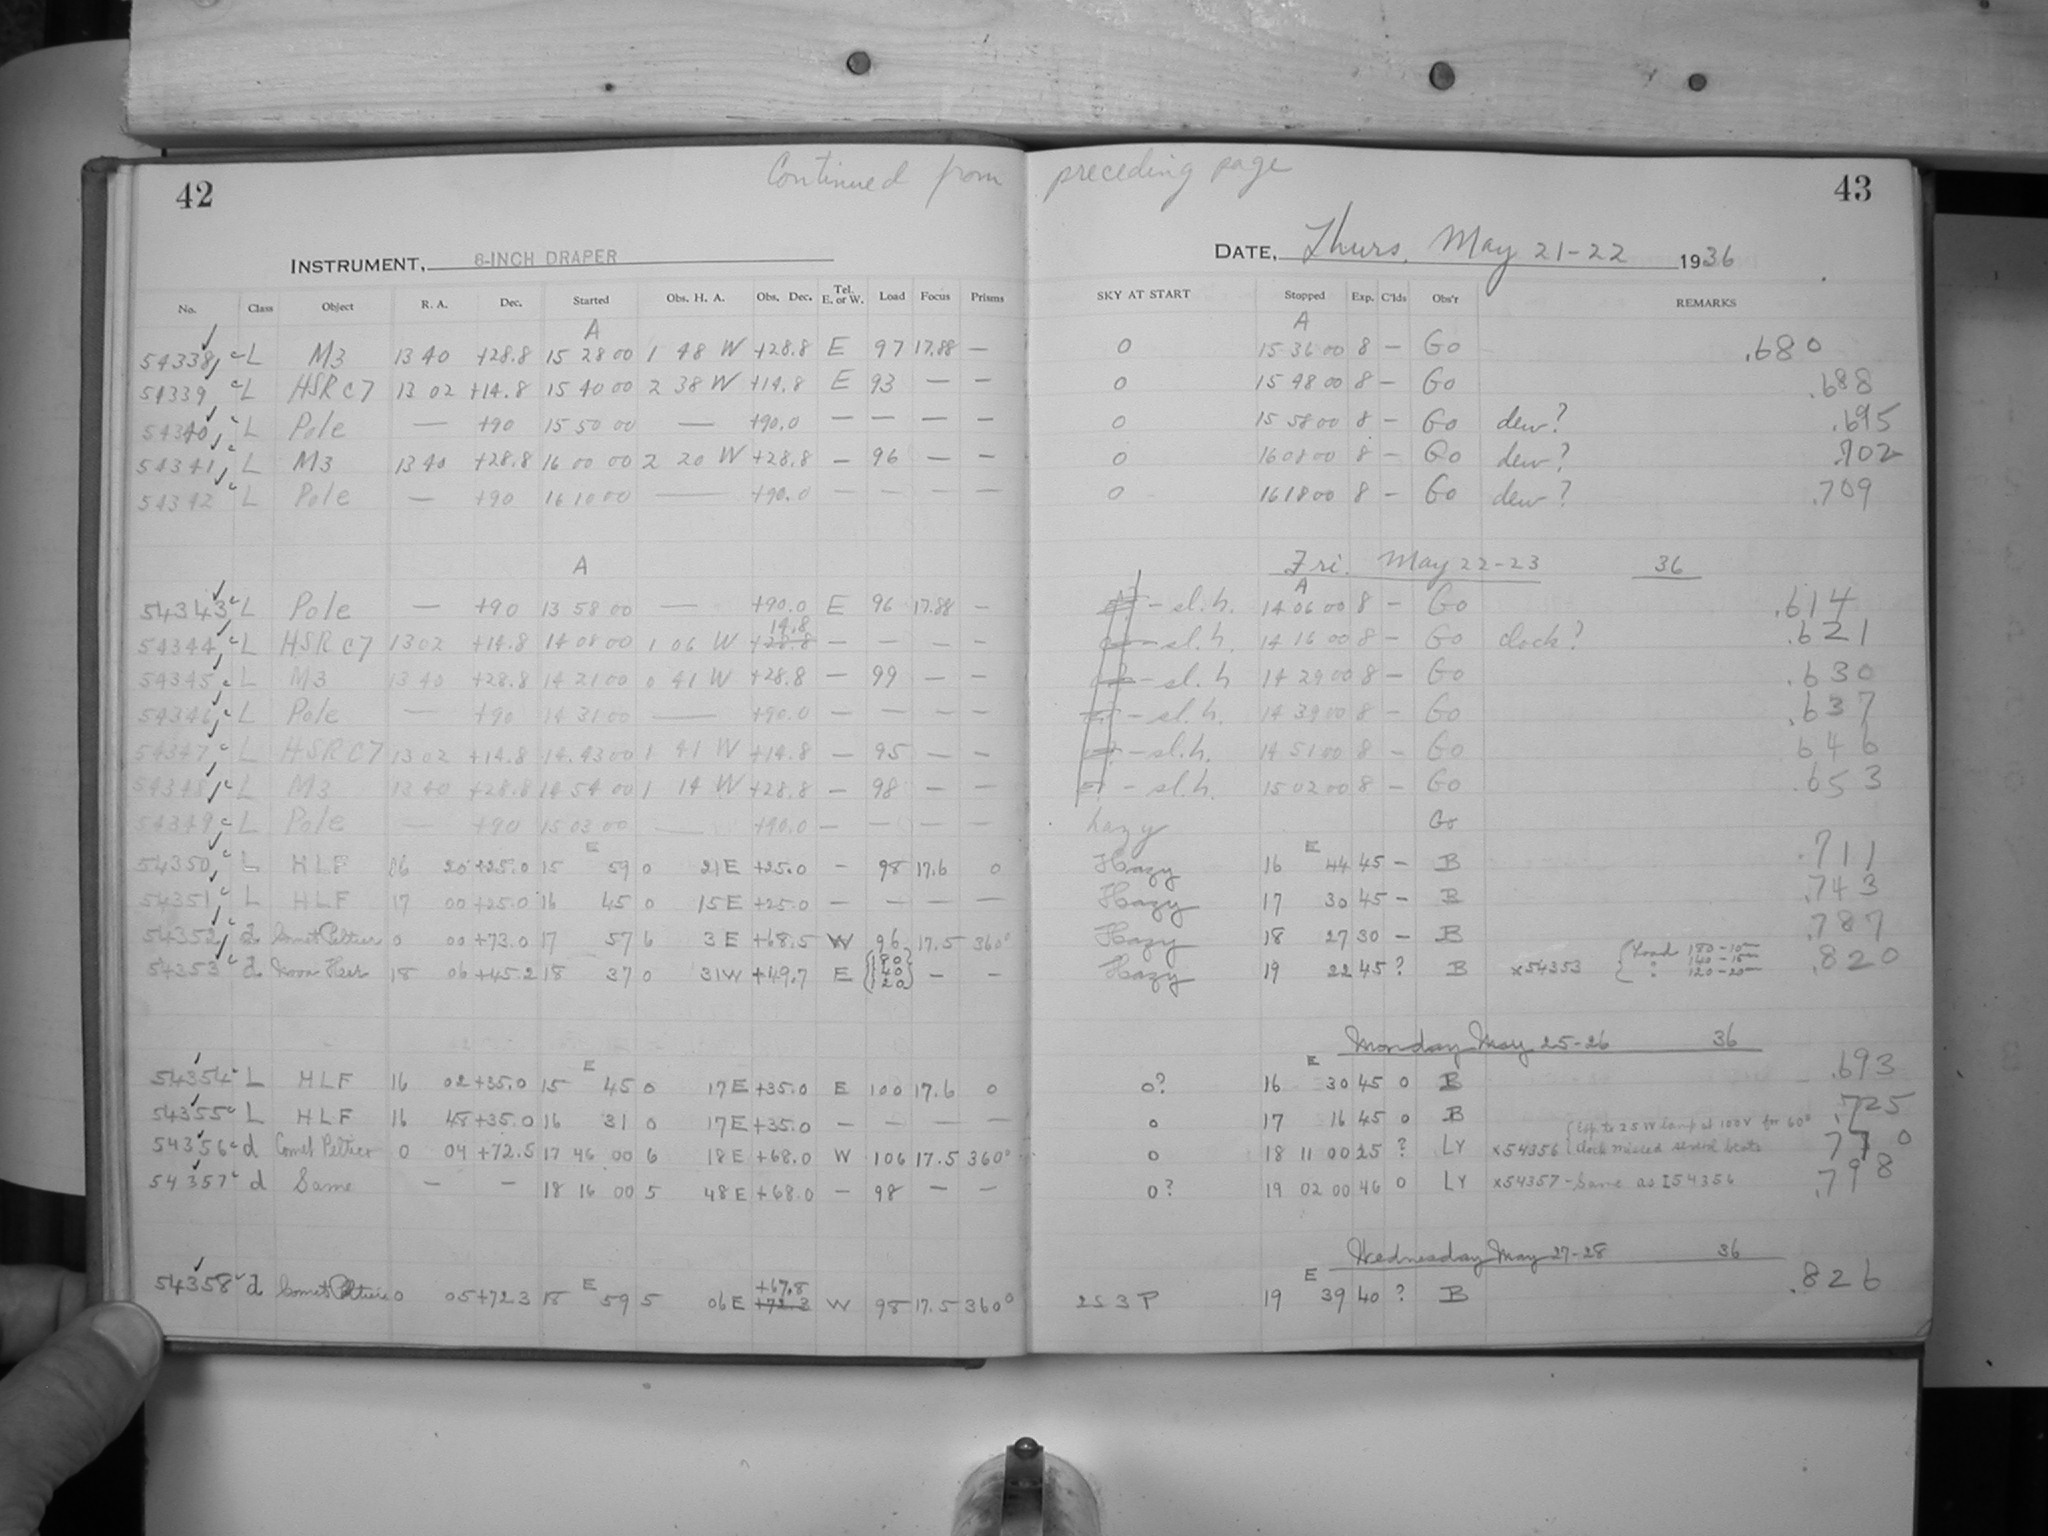 Continued from preceding page
42
43
INSTRUMENT, 8-INCH DRAPER DATE, Thurs. May 21-22 1936
No. Class Object R. A. Dec. Started Obs. H. A. Obs. Dec. Tel. E. or W. Load Focus Prisms SKY AT START Stopped Exp. C'lds Obs'r REMARKS
A A
54338 L M3 13 40 +28.8 15 28 00 1 48 W +28.8 E 97 17.88 — 0 15 36 00 8 — Go .680
54339 L HSR C7 13 02 +14.8 15 40 00 2 38 W +14.8 E 93 — — 0 15 48 00 8 — Go .688
54340 L Pole — +90 15 50 00 — +90.0 — — — — 0 15 58 00 8 — Go dew? .695
54341 L M3 13 40 +28.8 16 00 00 2 20 W +28.8 — 96 — — 0 16 08 00 8 — Go dew? .702
54342 L Pole — +90 16 10 00 — +90.0 — — — — 0 16 18 00 8 — Go dew? .709
Fri. May 22-23 36
A A
54343 L Pole — +90 13 58 00 — +90.0 E 96 17.88 — sl. h. 14 06 00 8 — Go .614
54344 L HSR C7 13 02 +14.8 14 08 00 1 06 W 14.8 +28.8 — — — — sl. h. 14 16 00 8 — Go clock? .621
54345 L M3 13 40 +28.8 14 21 00 0 41 W +28.8 — 99 — — sl. h 14 29 00 8 — Go .630
54346 L Pole — +90 14 31 00 — +90.0 — — — — sl. h. 14 39 00 8 — Go .637
54347 L HSR C7 13 02 +14.8 14 43 00 1 41 W +14.8 — 95 — — sl. h. 14 51 00 8 — Go .646
54348 L M3 13 40 +28.8 14 54 00 1 14 W +28.8 — 98 — — sl. h. 15 02 00 8 — Go .653
54349 L Pole — +90 15 03 00 — +90.0 — — — — hazy Go
E E
54350 L HLF 16 20 +25.0 15 59 0 21 E +25.0 — 98 17.6 0 Hazy 16 44 45 — B .711
54351 L HLF 17 00 +25.0 16 45 0 15 E +25.0 — — — — Hazy 17 30 45 — B .743
54352 d Comet Peltier 0 00 +73.0 17 57 6 3 E +68.5 W 96 17.5 360° Hazy 18 27 30 — B .787
54353 d Nova Her 18 06 +45.2 18 37 0 31 W +49.7 E {180 140 120} — — Hazy 19 22 45 ? B x54353 {Load 180-10m 140-15m 120-20m .820
Monday May 25-26 36
E E
54354 L HLF 16 02 +35.0 15 45 0 17 E +35.0 E 100 17.6 0 0? 16 30 45 0 B .693
54355 L HLF 16 48 +35.0 16 31 0 17 E +35.0 — — — — 0 17 16 45 0 B .725
54356 d Comet Peltier 0 04 +72.5 17 46 00 6 18 E +68.0 W 106 17.5 360° 0 18 11 00 25 ? LY x54356 {Exp. to 25 W lamp at 100V for 60s clock missed several beats 770
54357 d Same — — 18 16 00 5 48 E +68.0 — 98 — — 0? 19 02 00 46 0 LY x54357 - Same as I54356 .798
Wednesday May 27-28 36
E E
54358 d Comet Peltier 0 05 +72.3 18 59 5 06 E +67.8 +72.3 W 98 17.5 360° 2S 3 P 19 39 40 ? B .826